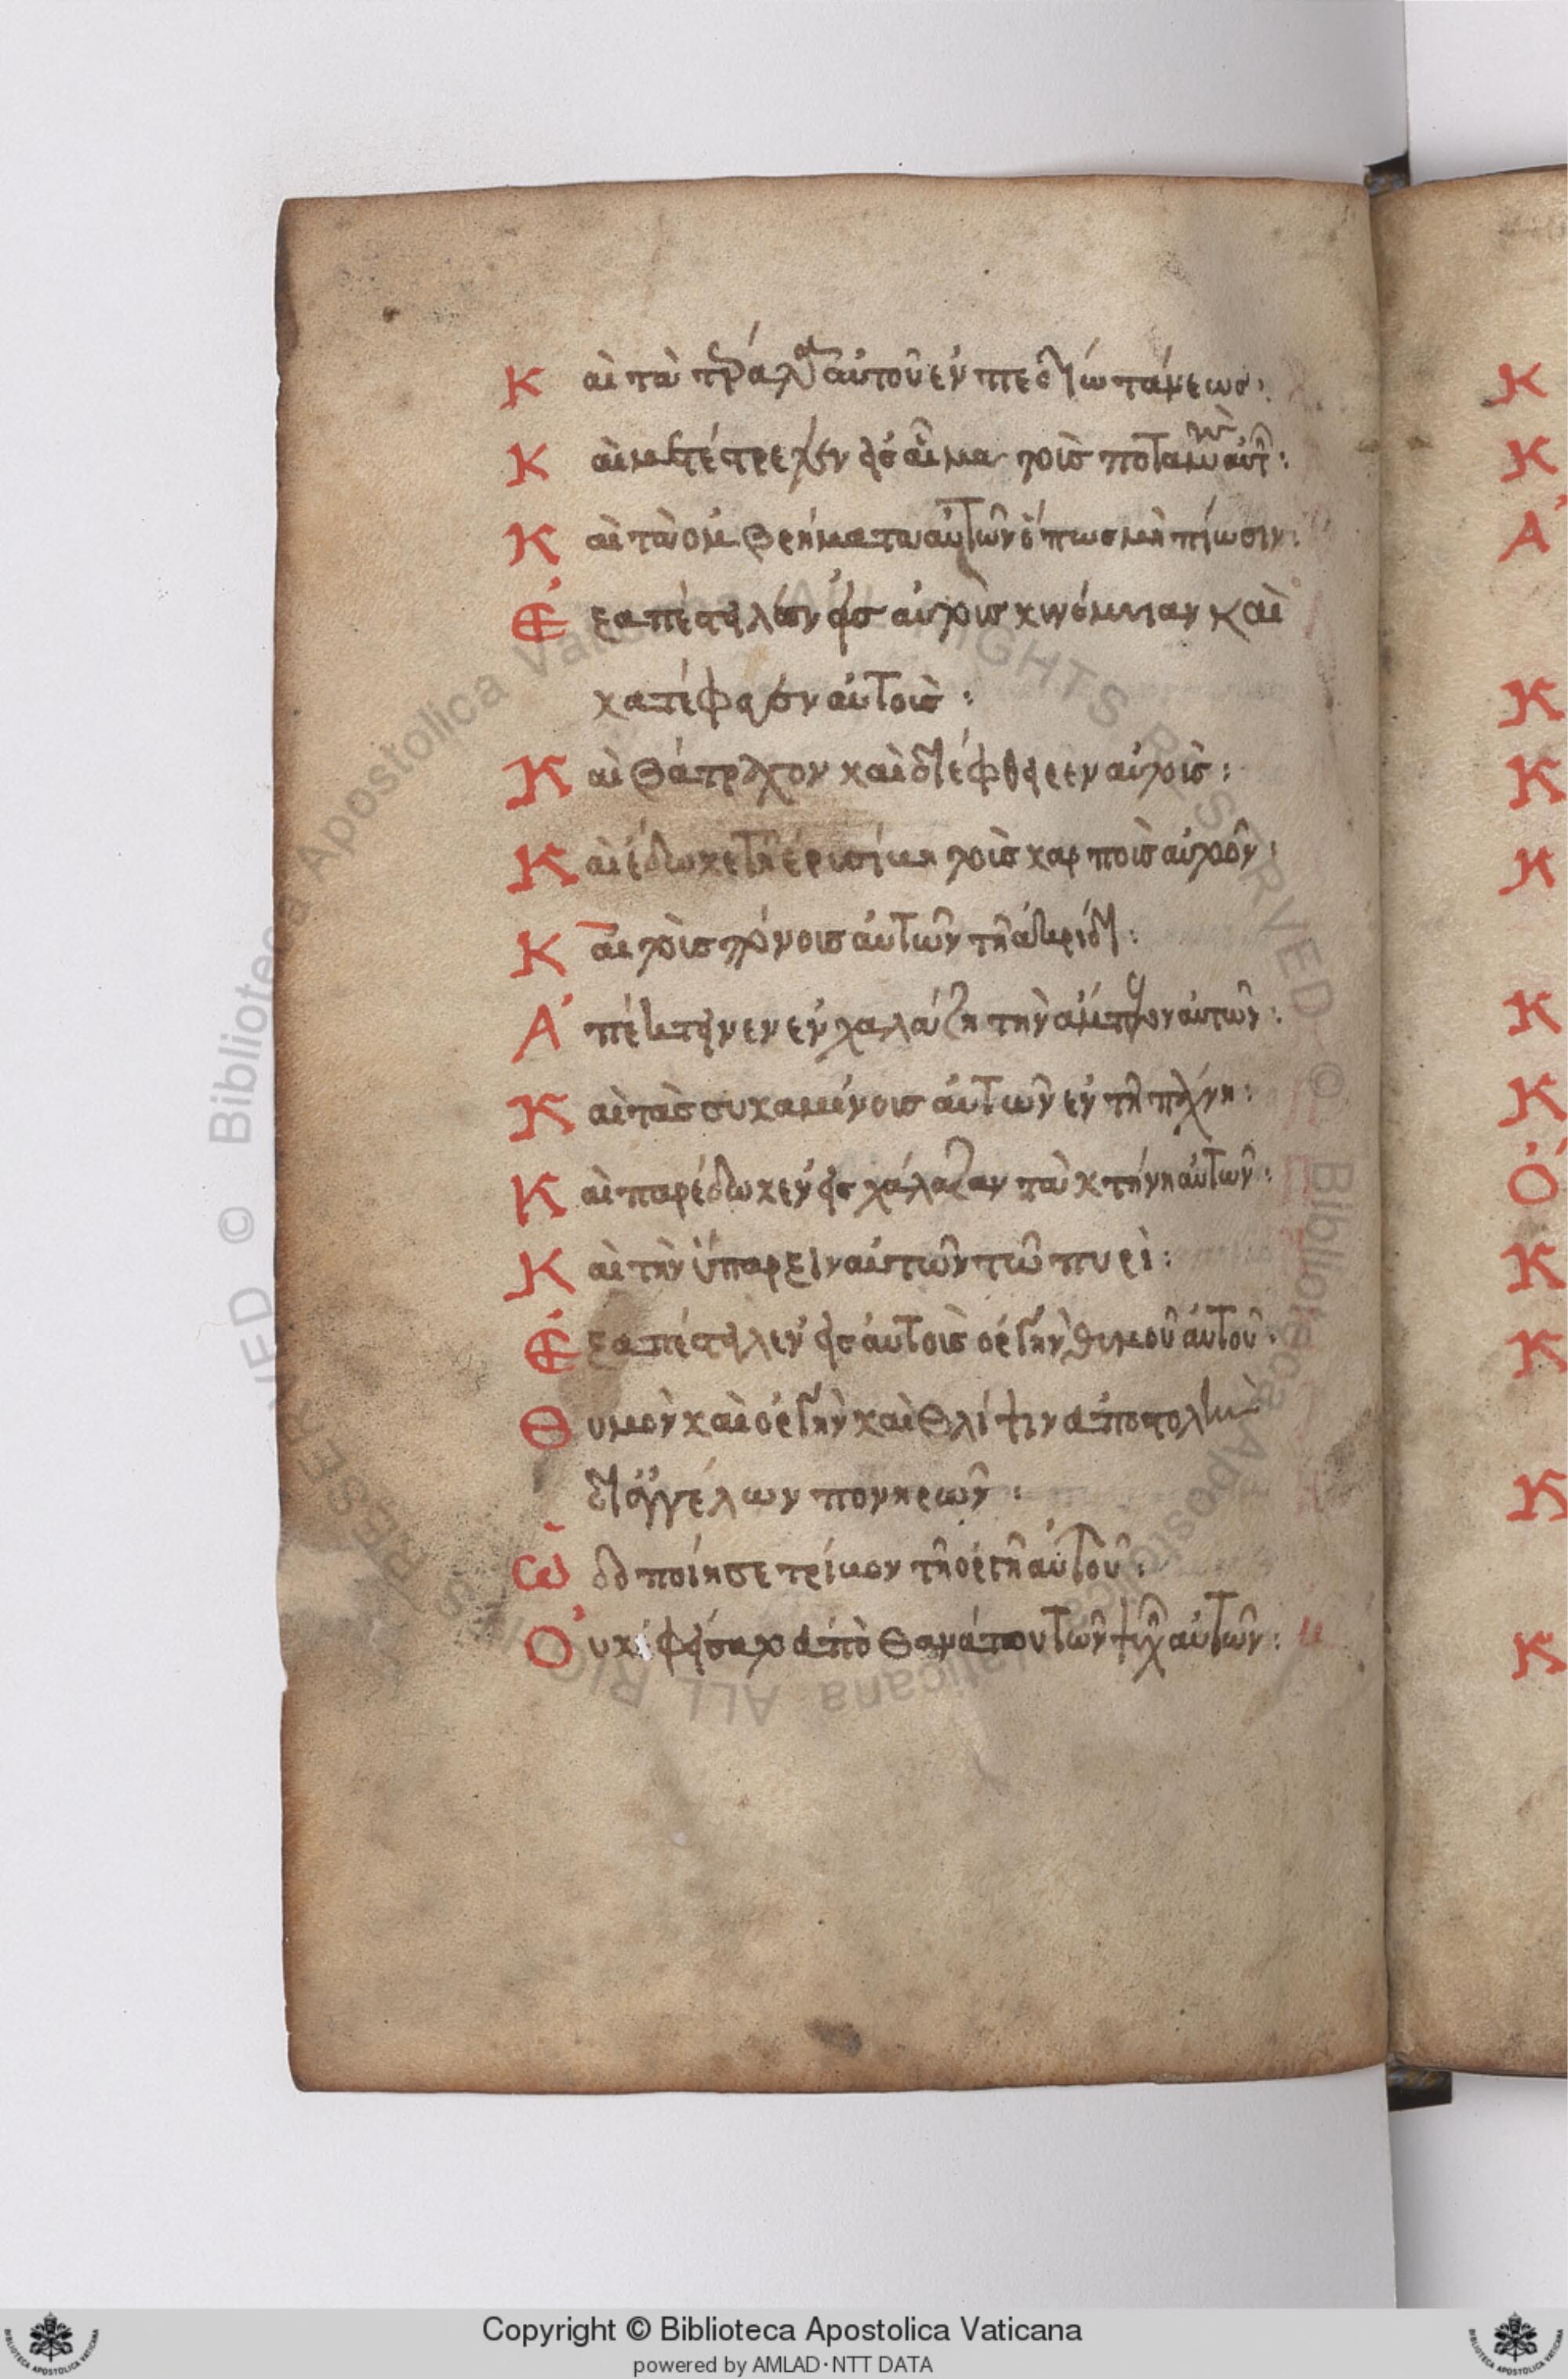 Καὶ τὰ τέρατα αὐτοῦ ἐν πεδίω τάνεως:
Καὶ μετέστρεψεν εἰς αἷμα τοὺς ποταμοὺς αὐτ:
Καὶ τὰ ὀμβρήματα αὐτῶν ὅπως μὴ πίωσιν:
Ἐξαπέστειλεν εἰς αὐτοὺς κυνόμυιαν καὶ
κατέφαγεν αὐτοὺς:
Καὶ βάτραχον καὶ διέφθειρεν αὐτοὺς:
Καὶ ἔδωκε τῆ ἐρισίβη τοὺς καρποὺς αὐτῶν:
Καὶ τοὺς πόνους αὐτῶν τῆ ἀκρίδι:
Ἀπέκτεινεν ἐν χαλάζη τὴν ἄμπελον αὐτῶν:
Καὶ τὰς συκαμίνους αὐτῶν ἐν τῆ πάχνη:
Καὶ παρέδωκεν εἰς χάλαζαν τὰ κτήνη αὐτῶν:
Καὶ τὴν ὕπαρξιν αὐτῶν τῶ πυρὶ:
Ἐξαπέστειλεν εἰς αὐτοὺς ὀργὴν θυμοῦ αὐτοῦ:
Θυμὸν καὶ ὀργὴν καὶ θλίψιν ἀποστολὴν
δι ἀγγέλων πονηρῶν:
Ὡδοποίησε τρίβον τῆ ὀργῆ αὐτοῦ:
Οὐκ ἐφείσατο ἀπὸ θανάτου τῶν ψυχῶν αὐτῶν:
Copyright © Biblioteca Apostolica Vaticana
powered by AMLAD·NTT DATA